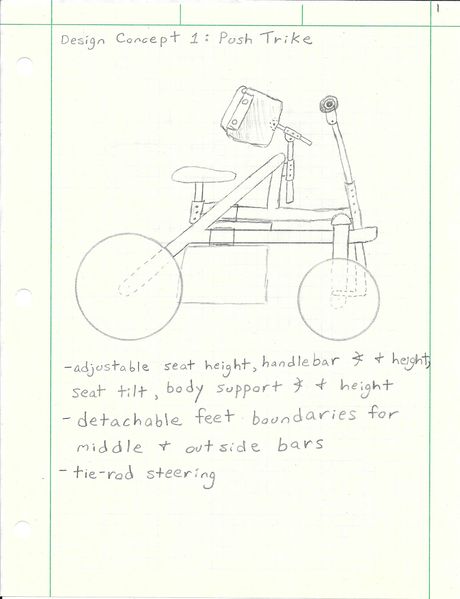 1
Design Concept 1: Push Trike
-adjustable seat height, handlebar ∡ + height,
seat tilt, body support ∡ + height
- detachable feet boundaries for
middle + outside bars
- tie-rod steering